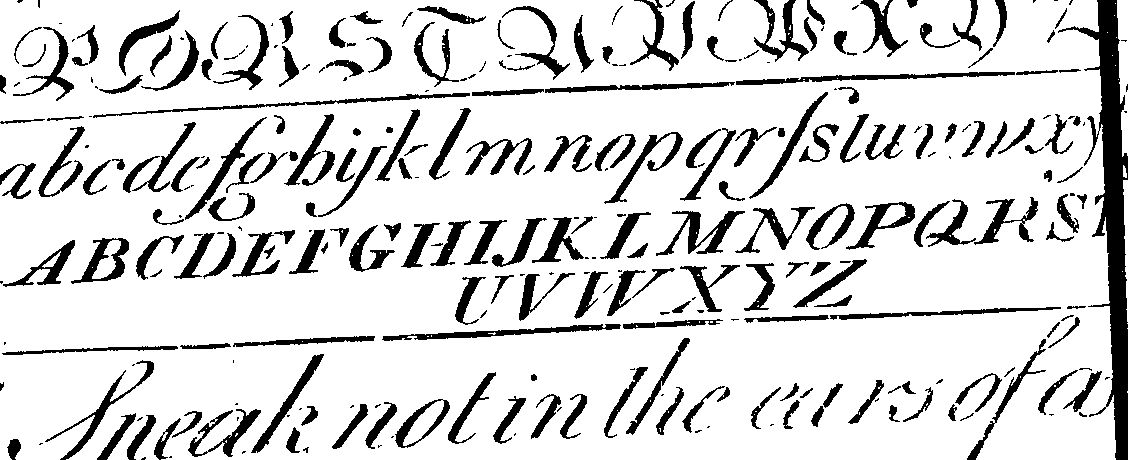 PQRSTUVWXYZ
abcdefghijklmnopqrſstuvwxy
ABCDEFGHIJKLMNOPQRST
UVWXYZ
Speak not in the ears of a